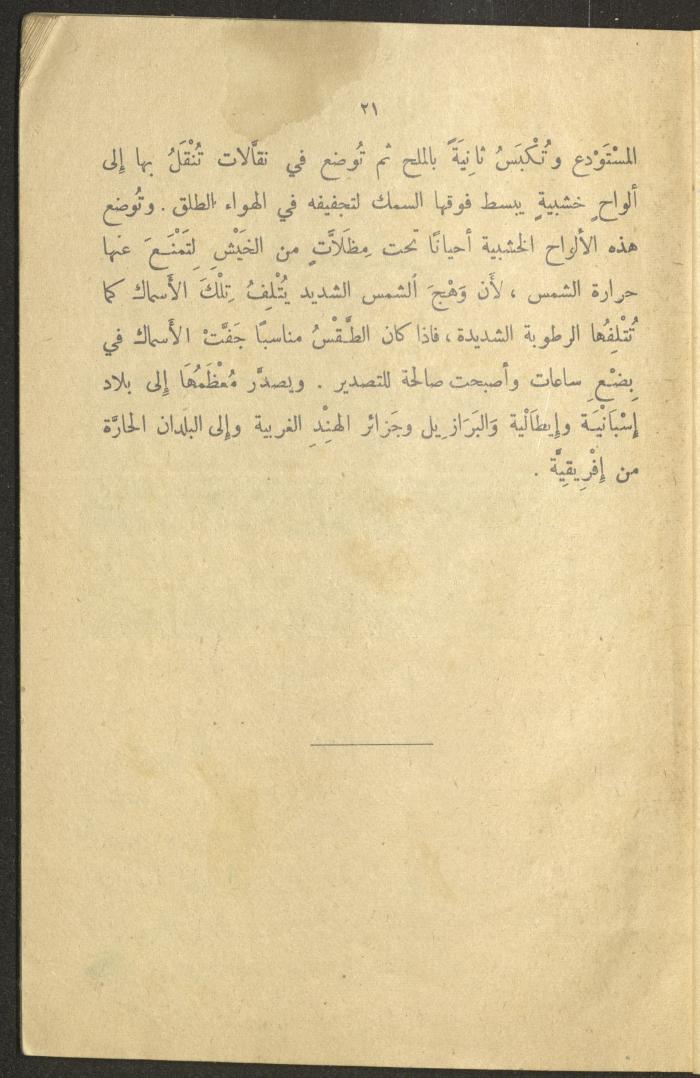 ٢١
المسْتَوْدع وتُكْبَسُ ثانِيَةً بالملح ثم تُوضع في نقَّالات تُنْقَلُ بها إِلى
ألواحٍ خشبيةٍ يبسط فوقها السمك لتجفيفه في الهواء الطلق . وتُوضع
هذه الألواح الخشبية أحيانًا تحت مِظَلاَّتٍ من الخَيْشِ لِتَمْنَـعَ عنها
حرارة الشمس ، لأَن وَهْجَ الشمس الشديد يُتْلِفُ تِلْكَ الأَسماك كما
تُتْلِفُها الرطوبة الشديدة ، فاذا كان الطَّقْسُ مناسبًا جَفَّتْ الأَسماك في
بِضْعِ ساعات وأصبحت صالحة للتصدير . ويصدَّر مُعْظَمُهَا إِلى بلاد
إِسْبَانْيَـة وإِيطَالْية وَالبَرَازِيل وجَزائر الهِنْدِ الغربية وإِلى البلدان الحارَّة
من إِفْرِيقِيَّة .